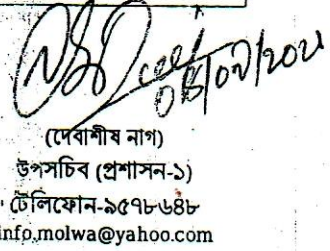 (দেবাশীষ নাগ)
উপসচিব (প্রশাসন-১)
টেলিফোন-৯৫৭৮৬৪৮
info.molwa@yahoo.com